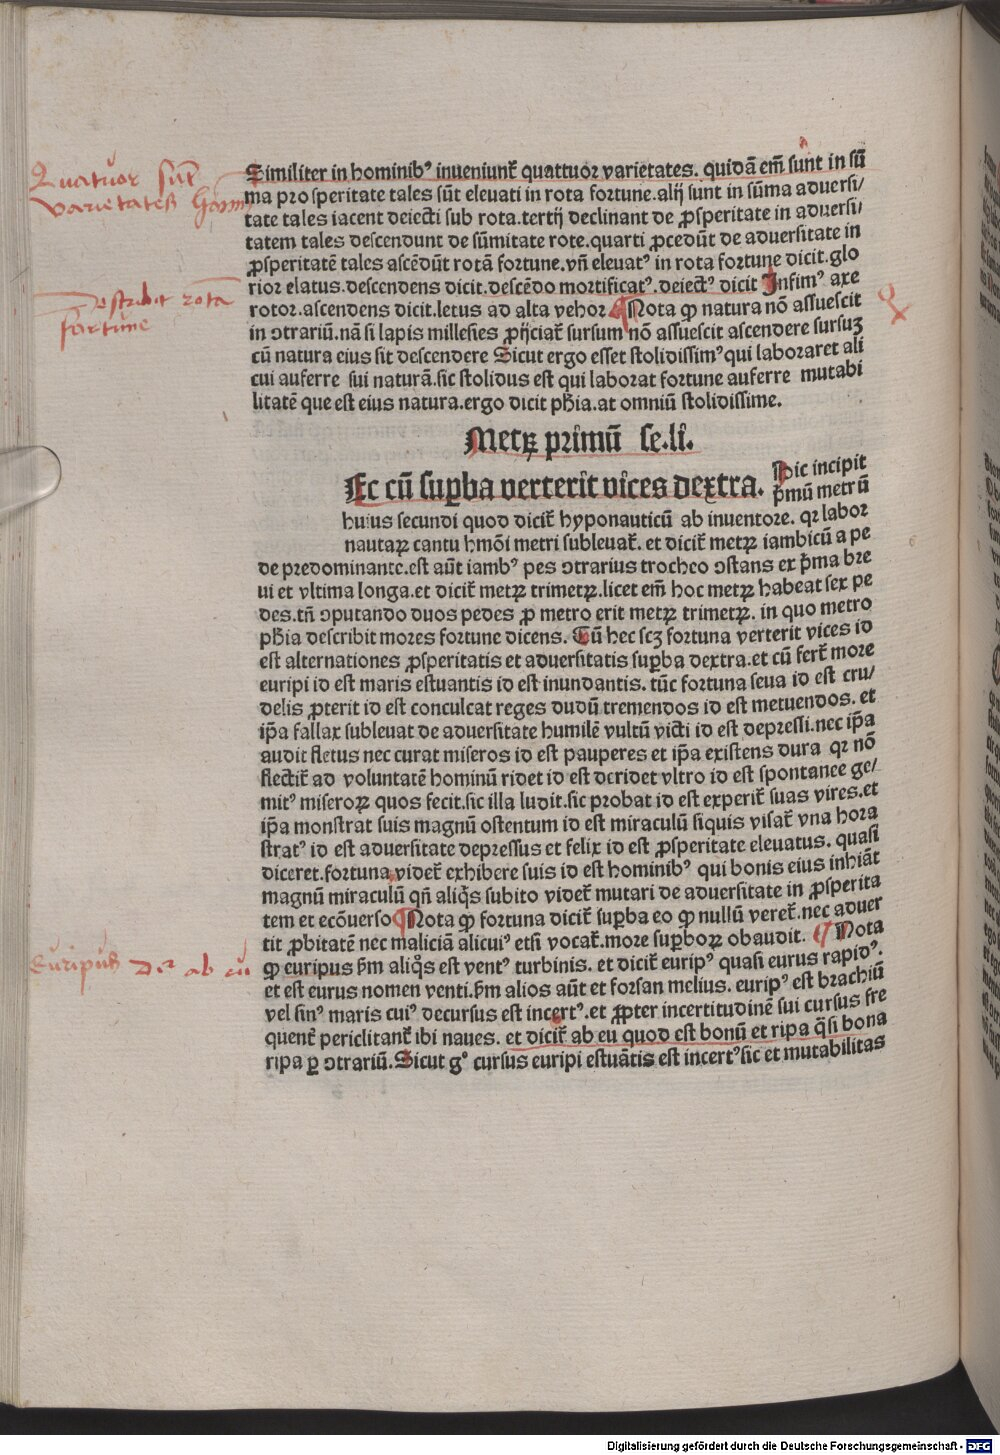 Quatuor sūt
varietates hōīm
Similiter in hominibꝰ inueniunt̃ quattuor varietates. quidā em̄ sunt in sū
ma prosperitate tales sūt eleuati in rota fortune.alij sunt in sūma aduersi/
tate tales iacent deiecti sub rota.tertij declinant de ꝓsperitate in aduersi/
tatem tales descendunt de sūmitate rote.quarti ꝓcedūt de aduersitate in
ꝓsperitatē tales ascēdūt rotā fortune.vñ eleuatꝰ in rota fortune dicit.glo
rior elatus.descendens dicit.descēdo mortificatꝰ.deiectꝰ dicit Infimꝰ axe
describit rotā
fortune
rotor.ascendens dicit.letus ad alta vehor ¶Nota ꝙ natura nō assuescit
in ↄtrariū.nā si lapis millesies ꝓijciat̃ sursum nō assuescit ascendere sursuꝫ
cū natura eius sit descendere Sicut ergo esset stolidissimꝰ qui laboraret ali
cui auferre sui naturā.sic stolidus est qui laborat fortune auferre mutabi
litatē que est eius natura.ergo dicit ph̄ia.at omniū stolidissime.
Metꝝ primū se.li.
Ec cū suꝑba verterit vices dextra. Hic incipit
p̄mū metrū
huius secundi quod dicit̃ hyponauticū ab inuentore. qꝛ labor
nautaꝝ cantu hmōi metri subleuat̃. et dicit̃ metꝝ iambicū a pe
de predominante.est aūt iambꝰ pes ↄtrarius trocheo ↄstans ex p̄ma bre
ui et vltima longa.et dicit̃ metꝝ trimetꝝ.licet em̄ hoc metꝝ habeat sex pe
des.tñ ↄputando duos pedes ꝓ metro erit metꝝ trimetꝝ. in quo metro
ph̄ia describit mores fortune dicens. Cū hec scꝫ fortuna verterit vices id
est alternationes ꝓsperitatis et aduersitatis suꝑba dextra.et cū fert̃ more
euripi id est maris estuantis id est inundantis. tūc fortuna seua id est cru/
delis ꝓterit id est conculcat reges dudū tremendos id est metuendos. et
ip̄a fallax subleuat de aduersitate humilē vultū victi id est depressi.nec ip̄a
audit fletus nec curat miseros id est pauperes et ip̄a existens dura qꝛ nō
flectit̃ ad voluntatē hominū ridet id est deridet vltro id est spontanee ge/
mitꝰ miseroꝝ quos fecit.sic illa ludit.sic probat id est experit̃ suas vires.et
ip̄a monstrat suis magnū ostentum id est miraculū siquis visat̃ vna hora
stratꝰ id est aduersitate depressus et felix id est ꝓsperitate eleuatus. quasi
diceret.fortuna videt̃ exhibere suis id est hominibꝰ qui bonis eius inhiāt
magnū miraculū qñ aliq̄s subito videt̃ mutari de aduersitate in ꝓsperita
tem et ecōuerso ¶Nota ꝙ fortuna dicit̃ suꝑba eo ꝙ nullū veret̃.nec aduer
tit ꝓbitatē nec maliciā alicuiꝰ etsi vocat̃.more suꝑboꝝ obaudit. ¶ Nota
Euripus dr̄ ab eu
ꝙ euripus ẜm aliq̊s est ventꝰ turbinis. et dicit̃ euripꝰ quasi eurus rapidꝰ.
et est eurus nomen venti.ẜm alios aūt et forsan melius. euripꝰ est brachiū
vel sinꝰ maris cuiꝰ decursus est incertꝰ.et ꝓpter incertitudinē sui cursus fre
quent̃ periclitant̃ ibi naues. et dicit̃ ab eu quod est bonū et ripa q̄si bona
ripa ꝑ ↄtrariū.Sicut g° cursus euripi estuātis est incertꝰ sic et mutabilitas
Digitalisierung gefördert durch die Deutsche Forschungsgemeinschaft - DFG